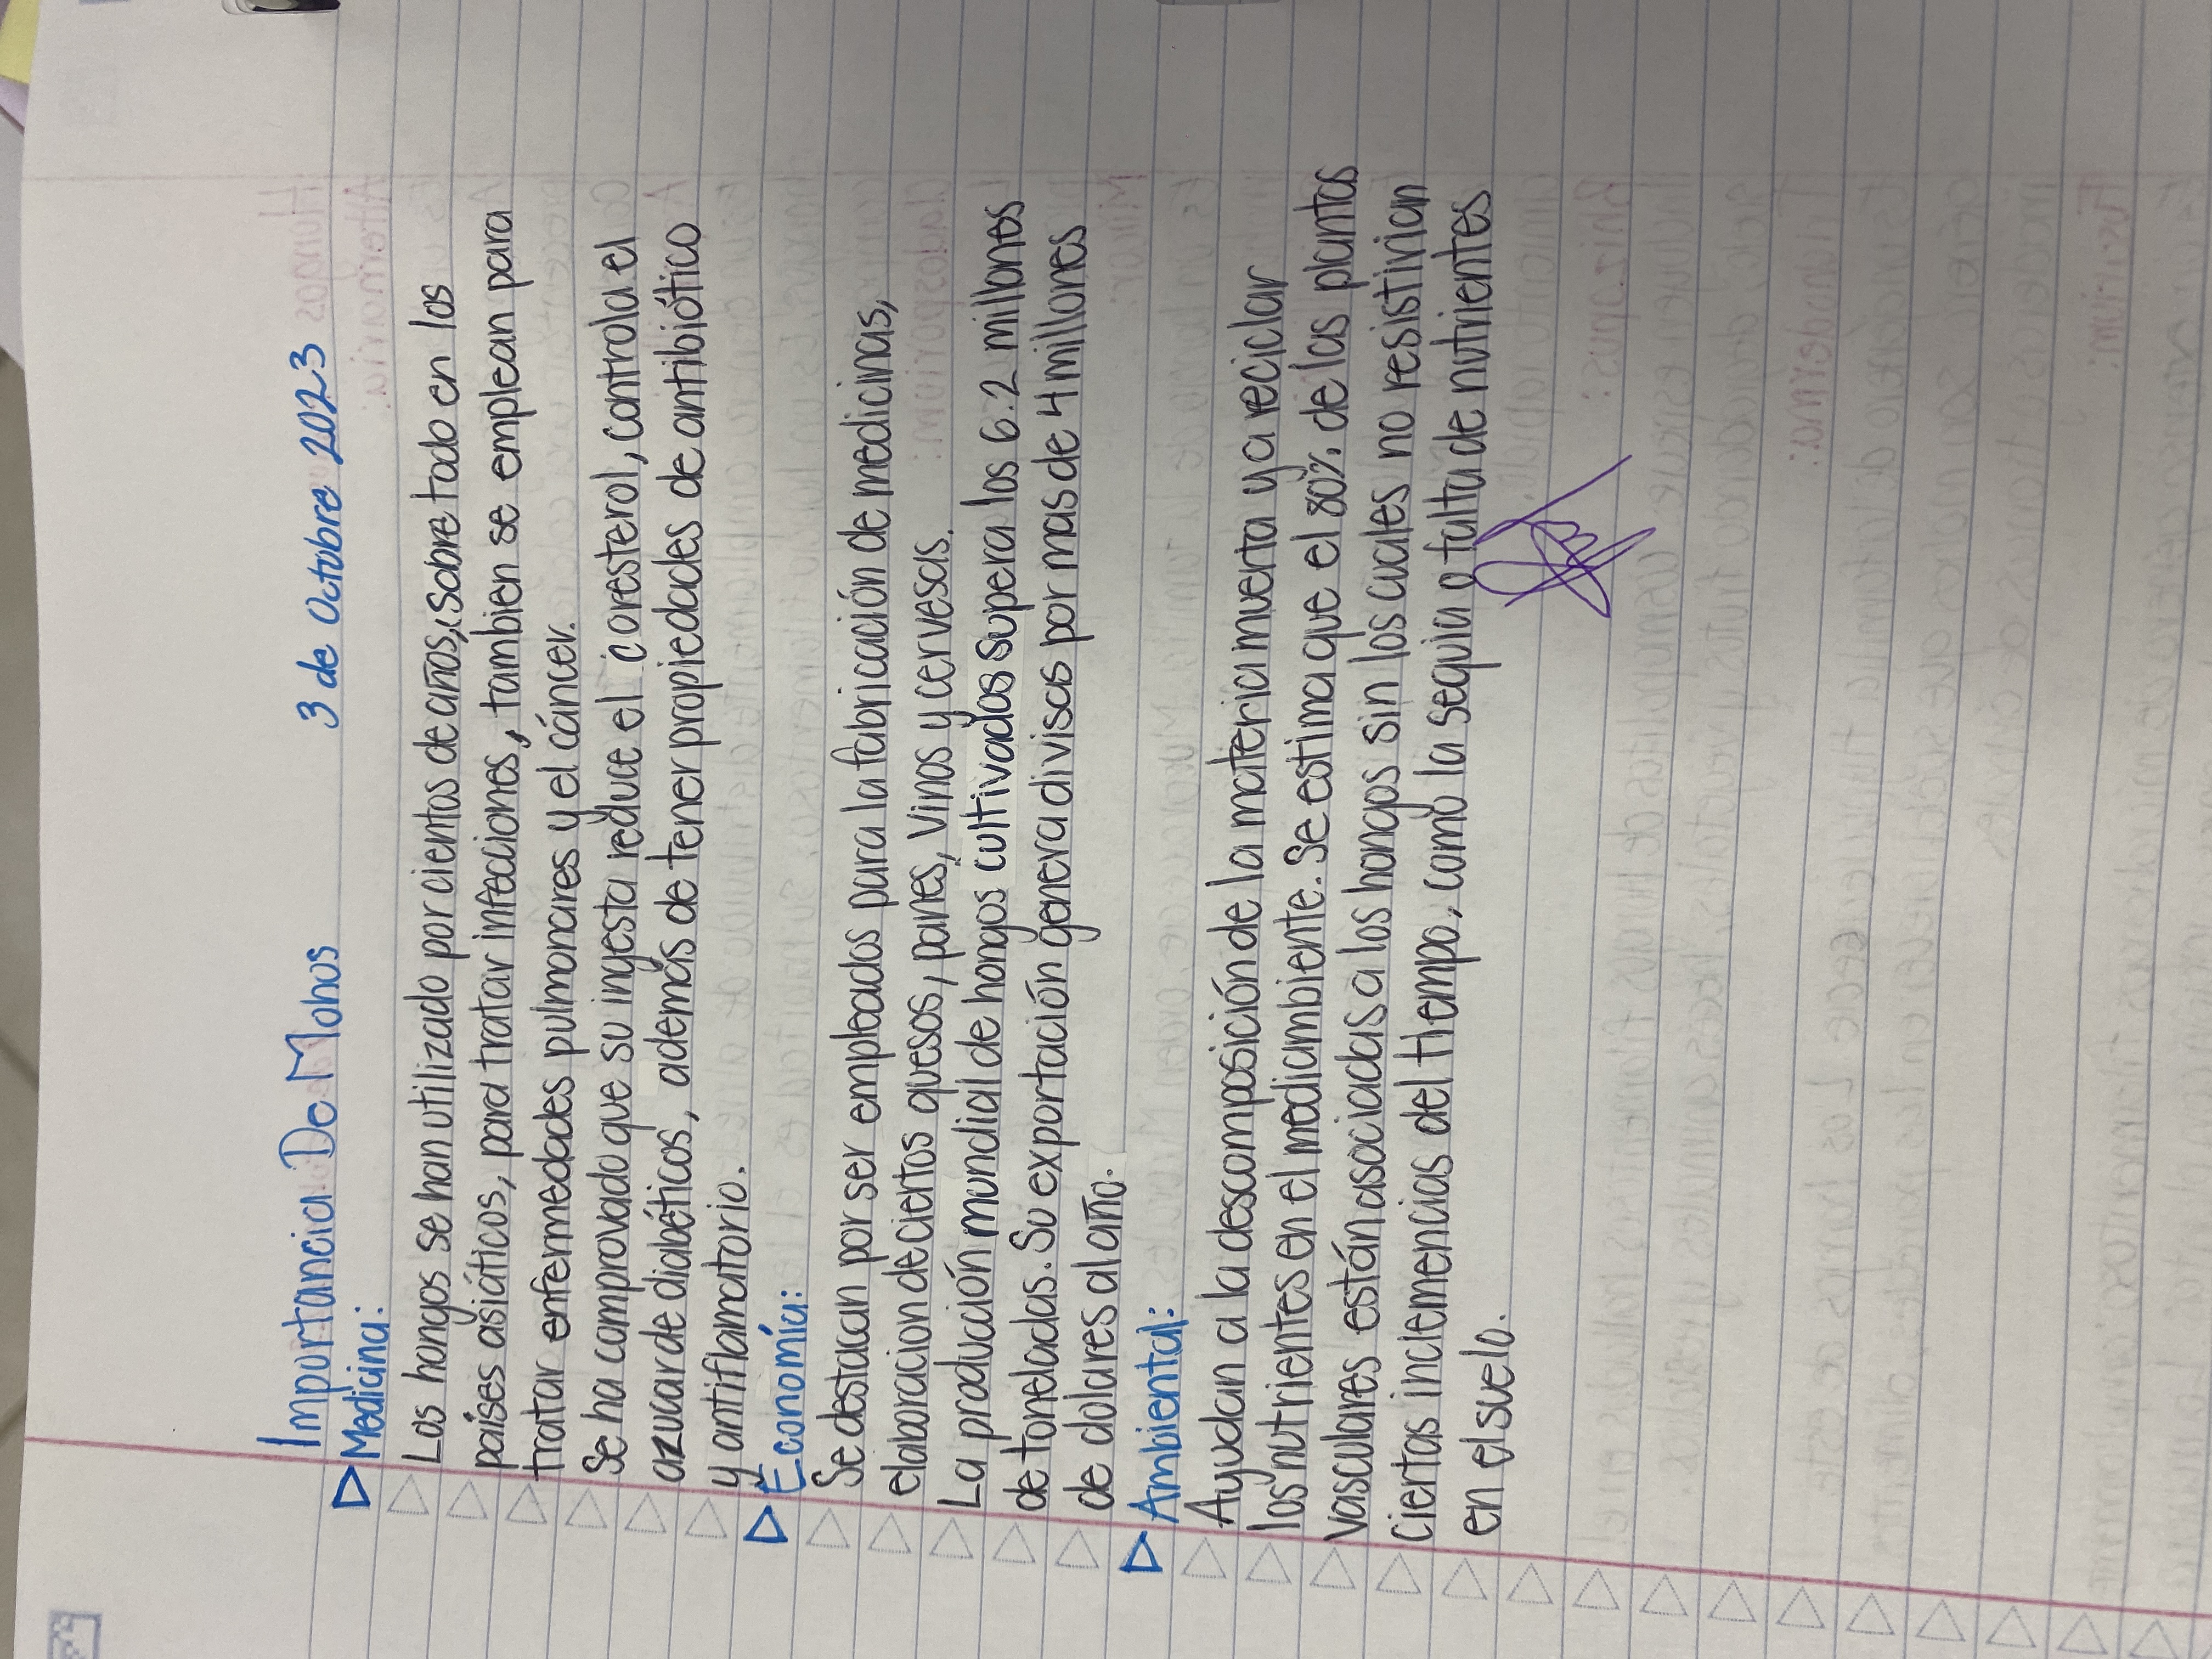 Importancia De Mohos 3 de Octubre 2023
Medicina:
Los hongos se han utilizado por cientos de años, sobre todo en los
países asiáticos, para tratar infecciones, tambien se emplean para
tratar enfermedades pulmonares y el cáncer.
Se ha comprovado que su ingesta reduce el coresterol, controla el
azucar de diabéticos, además de tener propiedades de antibiótico
y antiflamatorio.
Economía:
Se destacan por ser empleados para la fabricación de medicinas,
elaboracion de ciertos quesos, panes, vinos y cervesas.
La producción mundial de hongos cultivados supera los 6.2 millones
de toneladas. Su exportación genera divisas por mas de 4 millones
de dolares al año.
Ambiental:
Ayudan a la descomposición de la materia muerta y a reciclar
los nutrientes en el mediambiente. Se estima que el 80% de las plantas
vasculares están asociadas a los hongos sin los cuales no resistirian
ciertas inclemencias del tiempo, como la sequia o falta de nutrientes
en el suelo.